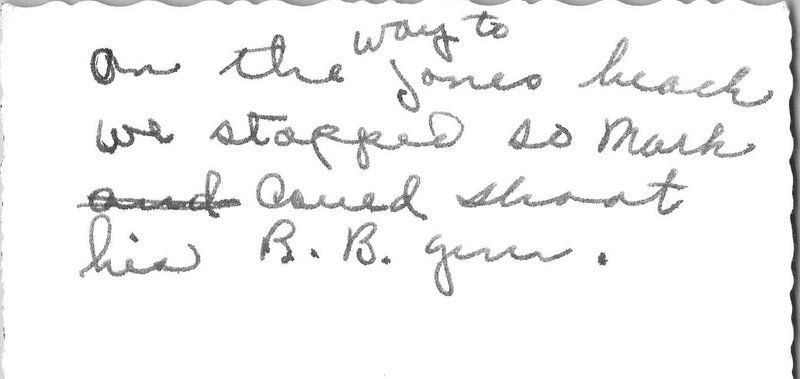 On the way to Jones beach
we stopped so Mark
and Coued shoot
his B.B. gun.